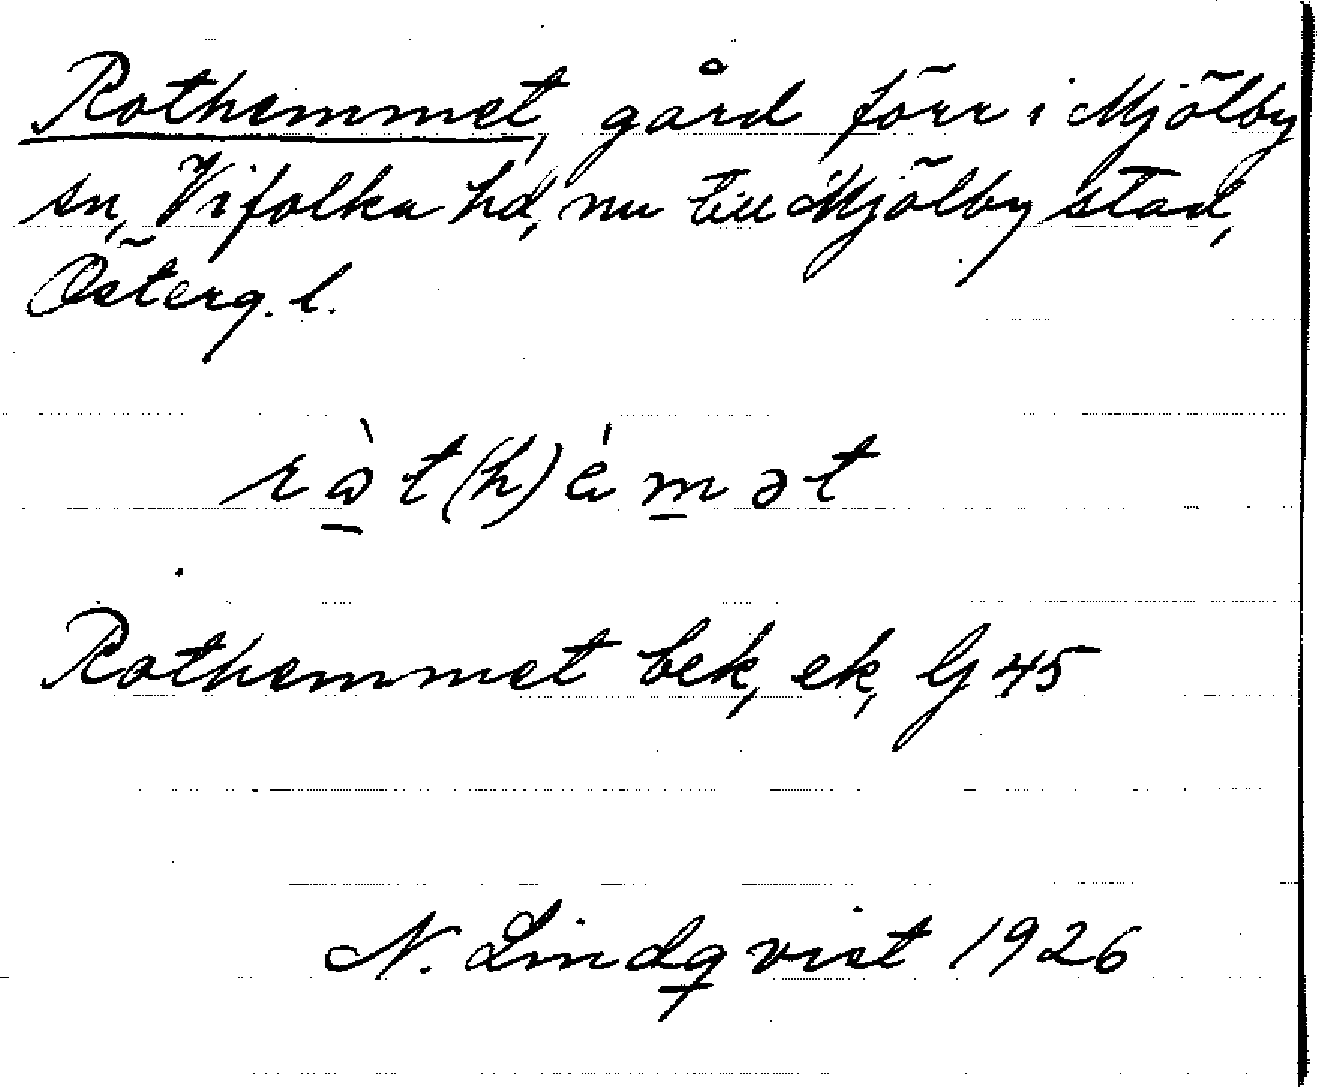 Rothemmet, gård förr i Mjölby
sn, Vifolka hd, nu till Mjölby stad,
Österg. l.
ràt(h)émət
Rothemmet bek, ek, Gj 45
N. Lindqvist 1926